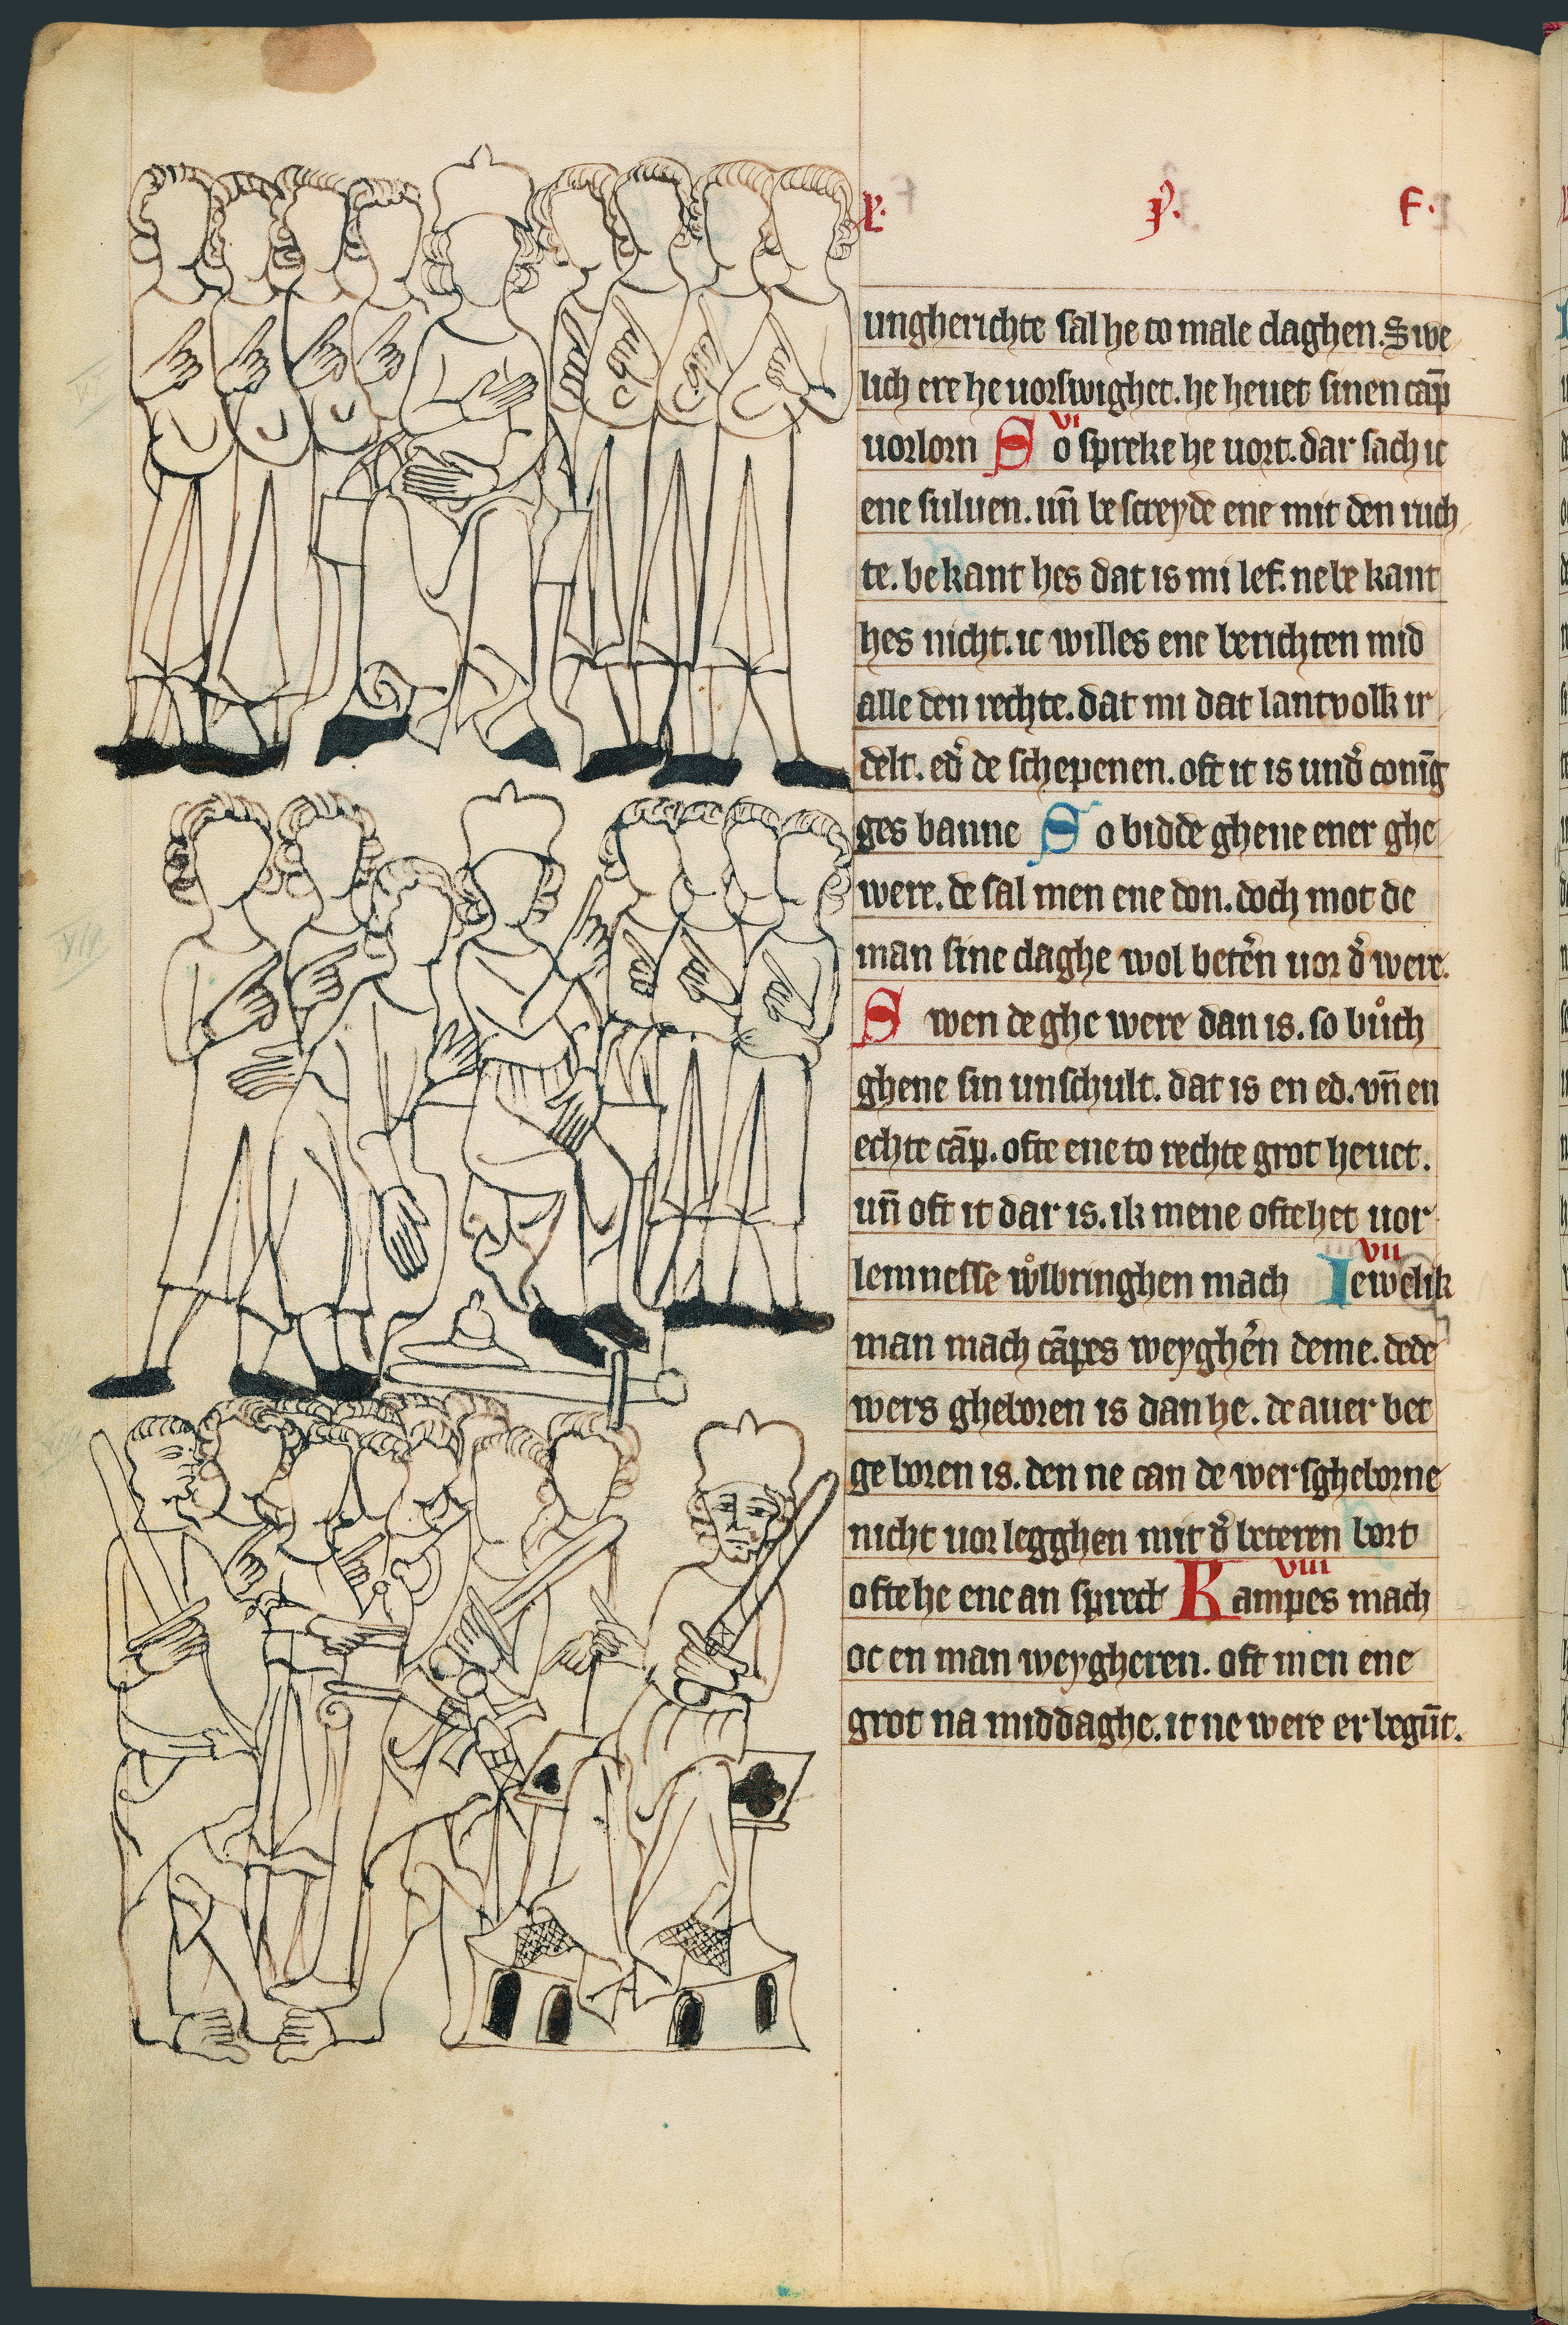 p. p. f.
ungherichte sal he to male claghen. Swe
lich ere he uorswighet. he heuet sinen cāp
uorlorn So spreke he uort. dar sach ic
vi
ene suluen. un̄ be screyde ene mit den ruch
te. bekant hes dat is mi lef. ne be kant
hes nicht. ic willes ene berichten mid
alle den rechte. dat mi dat lantvolk ir
delt. ed' de schepenen. oft it is und' conīg
ges banne So bidde ghene ener ghe
were. de sal men ene don. doch mot de
man sine claghe wol beter̄n uor d' were.
Swen de ghe were dan is. so bůth
ghene sin unschult. dat is en ed. vn̄ en
echte cāp. ofte ene to rechte grot heuet.
un̄ oft it dar is. ik mene ofte het uor
lemnesse wͦlbringhen mach Iewelik
vii
man mach cāpes weyghe'n deme. de de
wers gheboren is dan he. de auer bet
geboren is. den ne can de wersgheborne
nicht uor legghen mit d' beteren bort
ofte he ene an sprect Kampes mach
viii
oc en man weygheren. oft men ene
grot na middaghe. it ne were er begūt.